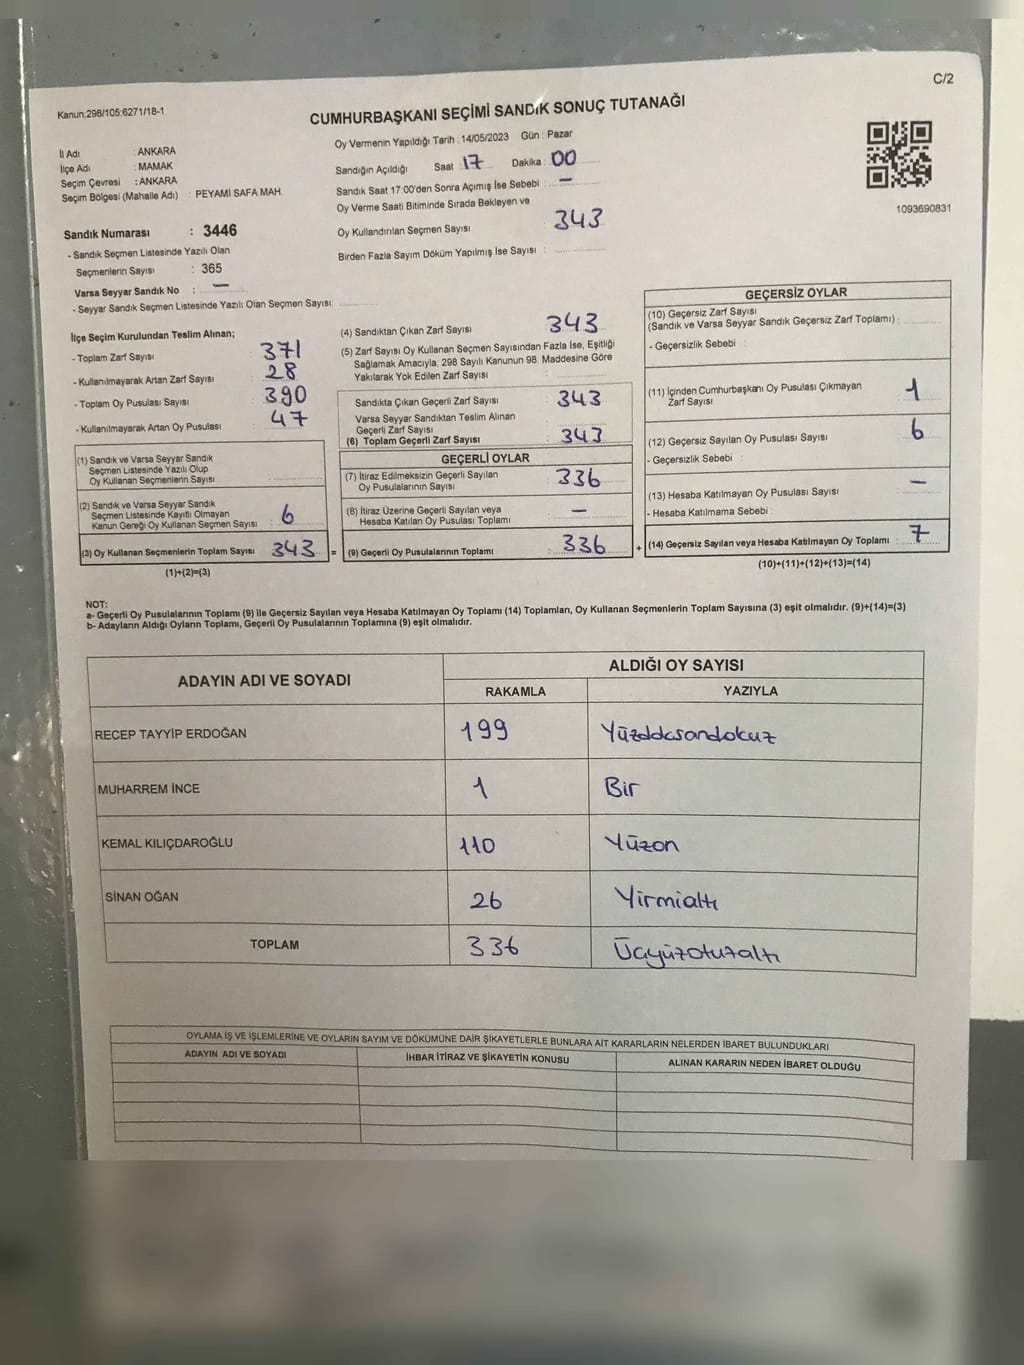 C/2
Kanun;298/105;6271/18-1
CUMHURBAŞKANI SEÇİMİ SANDIK SONUÇ TUTANAĞI
Oy Vermenin Yapıldığı Tarih : 14/05/2023 Gün : Pazar
İl Adı : ANKARA
İlçe Adı : MAMAK
Seçim Çevresi : ANKARA
Seçim Bölgesi (Mahalle Adı) : PEYAMİ SAFA MAH.
Sandığın Açıldığı Saat 17 Dakika : 00
Sandık Saat 17:00'den Sonra Açımış İse Sebebi : —
Oy Verme Saati Bitiminde Sırada Bekleyen ve
Oy Kullandırılan Seçmen Sayısı 343
Birden Fazla Sayım Döküm Yapılmış İse Sayısı :
1093690831
Sandık Numarası : 3446
- Sandık Seçmen Listesinde Yazılı Olan
Seçmenlerin Sayısı : 365
Varsa Seyyar Sandık No : —
- Seyyar Sandık Seçmen Listesinde Yazılı Olan Seçmen Sayısı:
İlçe Seçim Kurulundan Teslim Alınan;
- Toplam Zarf Sayısı : 371
- Kullanılmayarak Artan Zarf Sayısı : 28
- Toplam Oy Pusulası Sayısı : 390
- Kullanılmayarak Artan Oy Pusulası : 47
(1) Sandık ve Varsa Seyyar Sandık
Seçmen Listesinde Yazılı Olup
Oy Kullanan Seçmenlerin Sayısı :
(2) Sandık ve Varsa Seyyar Sandık
Seçmen Listesinde Kayıtlı Olmayan
Kanun Gereği Oy Kullanan Seçmen Sayısı : 6
(3) Oy Kullanan Seçmenlerin Toplam Sayısı 343 =
(1)+(2)=(3)
(4) Sandıktan Çıkan Zarf Sayısı : 343
(5) Zarf Sayısı Oy Kullanan Seçmen Sayısından Fazla İse, Eşitliği
Sağlamak Amacıyla; 298 Sayılı Kanunun 98. Maddesine Göre
Yakılarak Yok Edilen Zarf Sayısı :
Sandıkta Çıkan Geçerli Zarf Sayısı : 343
Varsa Seyyar Sandıktan Teslim Alınan
Geçerli Zarf Sayısı :
(6) Toplam Geçerli Zarf Sayısı : 343
GEÇERLİ OYLAR
(7) İtiraz Edilmeksizin Geçerli Sayılan
Oy Pusulalarının Sayısı : 336
(8) İtiraz Üzerine Geçerli Sayılan veya
Hesaba Katılan Oy Pusulası Toplamı : —
(9) Geçerli Oy Pusulalarının Toplamı : 336 +
GEÇERSİZ OYLAR
(10) Geçersiz Zarf Sayısı
(Sandık ve Varsa Seyyar Sandık Geçersiz Zarf Toplamı) :
- Geçersizlik Sebebi :
(11) İçinden Cumhurbaşkanı Oy Pusulası Çıkmayan
Zarf Sayısı : 1
(12) Geçersiz Sayılan Oy Pusulası Sayısı : 6
- Geçersizlik Sebebi :
(13) Hesaba Katılmayan Oy Pusulası Sayısı : —
- Hesaba Katılmama Sebebi :
(14) Geçersiz Sayılan veya Hesaba Katılmayan Oy Toplamı : 7
(10)+(11)+(12)+(13)=(14)
NOT:
a- Geçerli Oy Pusulalarının Toplamı (9) ile Geçersiz Sayılan veya Hesaba Katılmayan Oy Toplamı (14) Toplamları, Oy Kullanan Seçmenlerin Toplam Sayısına (3) eşit olmalıdır. (9)+(14)=(3)
b- Adayların Aldığı Oyların Toplamı, Geçerli Oy Pusulalarının Toplamına (9) eşit olmalıdır.
ADAYIN ADI VE SOYADI ALDIĞI OY SAYISI
RAKAMLA YAZIYLA
RECEP TAYYİP ERDOĞAN 199 Yüzdoksandokuz
MUHARREM İNCE 1 Bir
KEMAL KILIÇDAROĞLU 110 Yüzon
SİNAN OĞAN 26 Yirmialtı
TOPLAM 336 Üçyüzotuzaltı
OYLAMA İŞ VE İŞLEMLERİNE VE OYLARIN SAYIM VE DÖKÜMÜNE DAİR ŞİKAYETLERLE BUNLARA AİT KARARLARIN NELERDEN İBARET BULUNDUKLARI
ADAYIN ADI VE SOYADI İHBAR İTİRAZ VE ŞİKAYETİN KONUSU ALINAN KARARIN NEDEN İBARET OLDUĞU